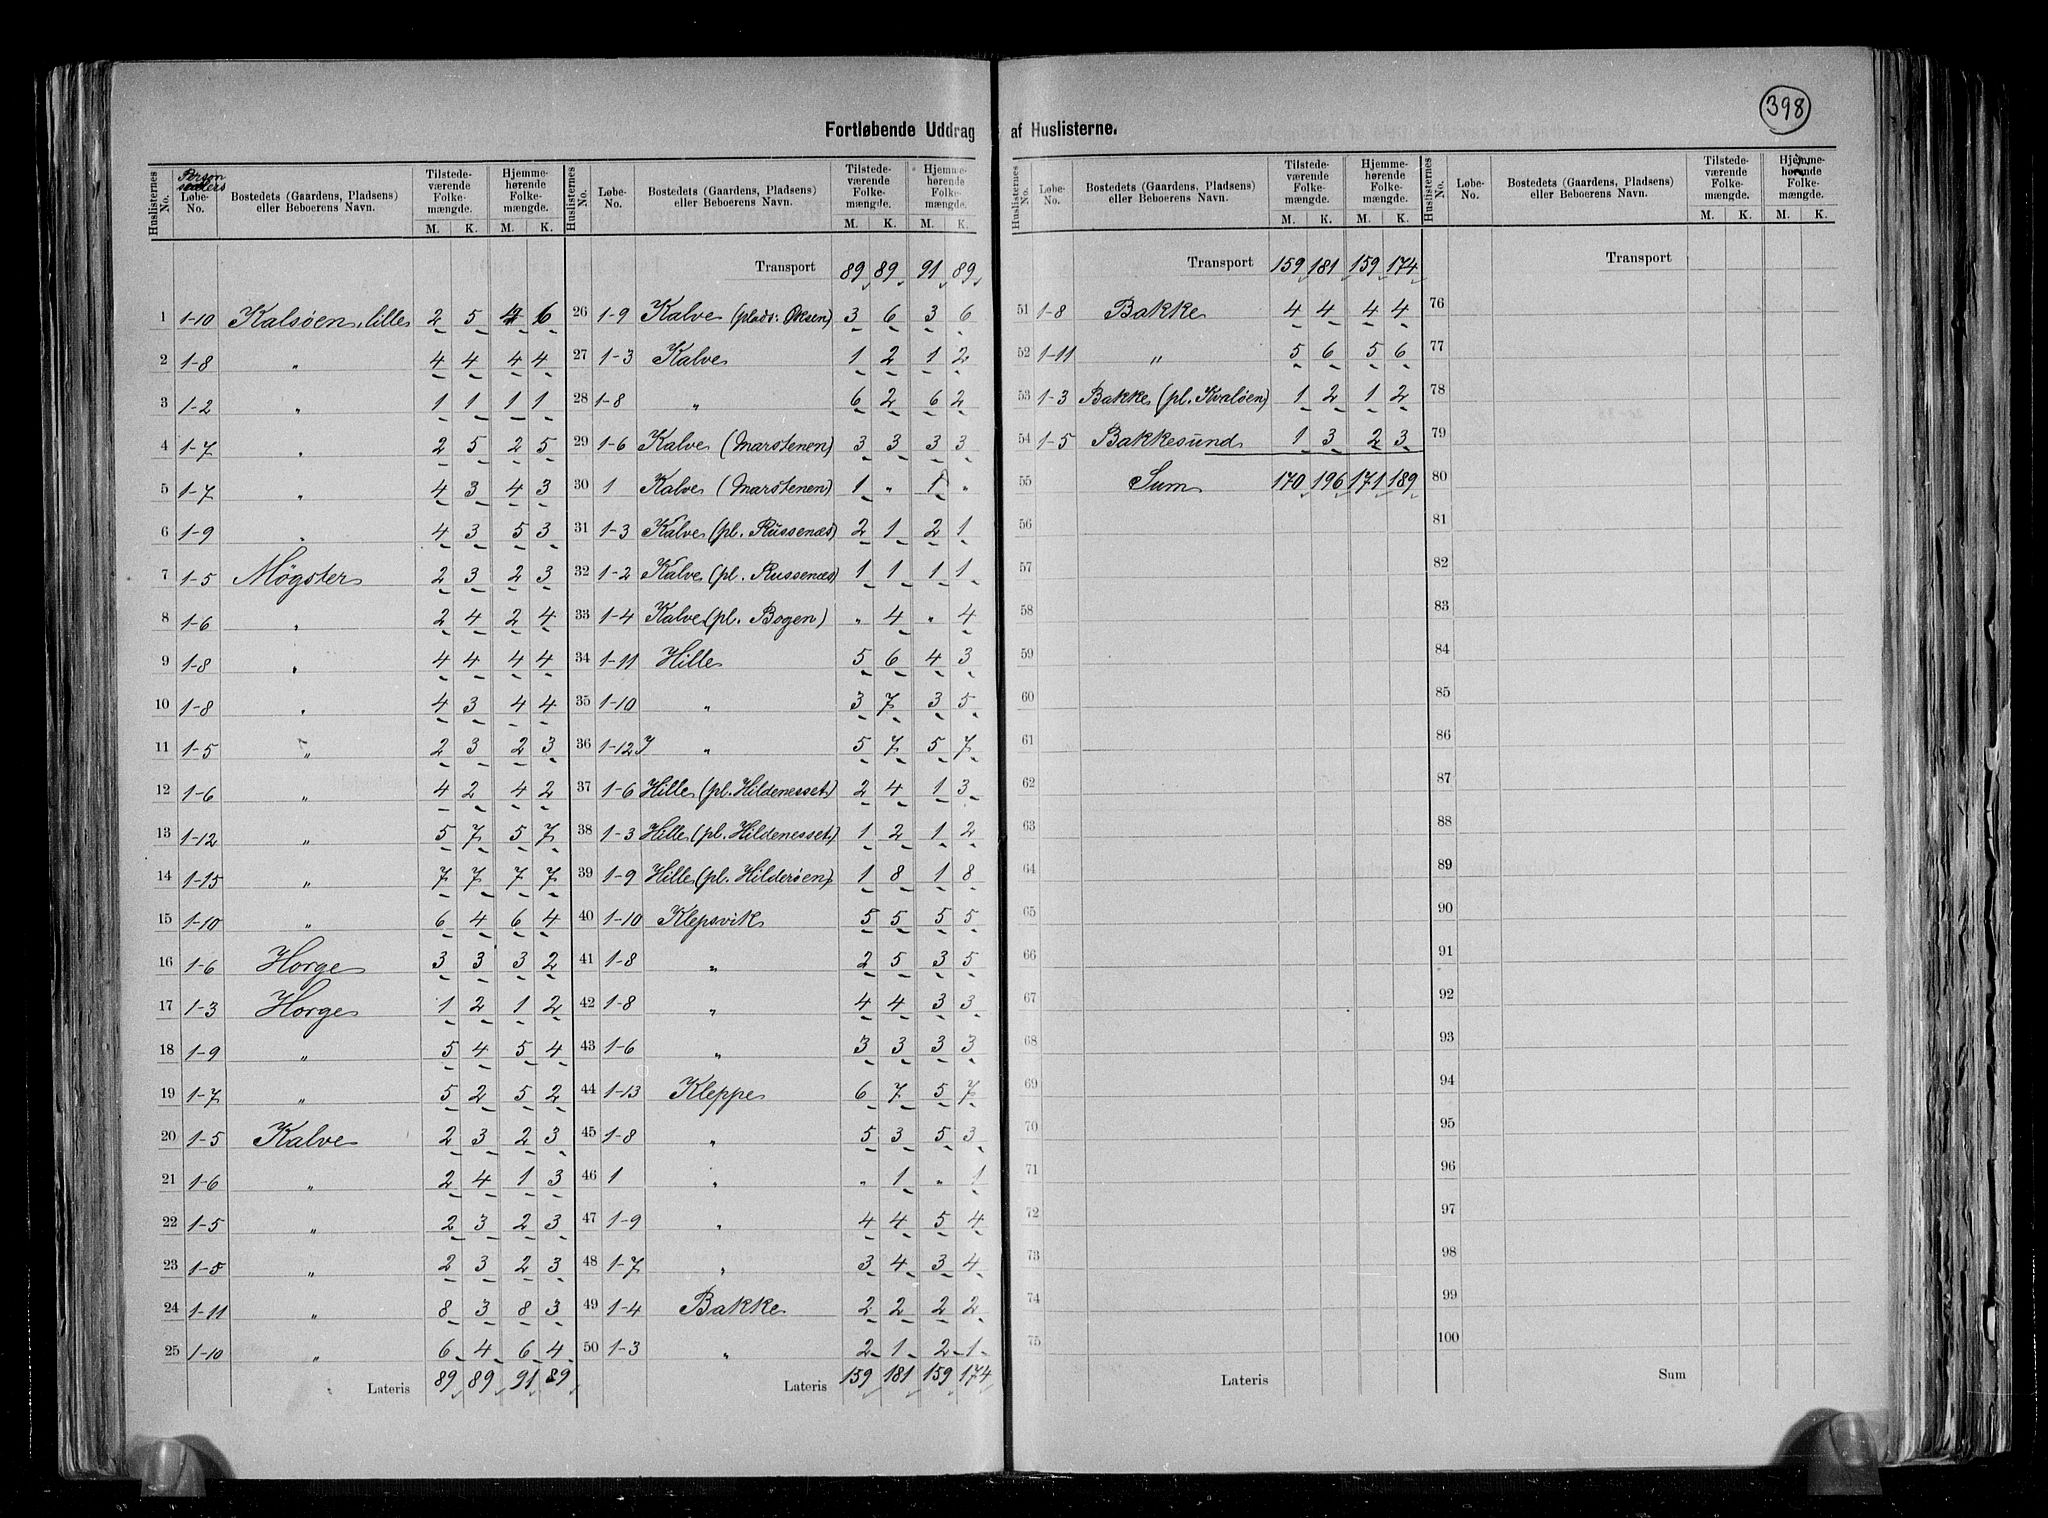 398
Fortløbende Uddrag af Huslisterne.
Huslisternes No. Person sedlers Løbe-No. Bostedets (Gaardens, Pladsens) eller Beboerens Navn. Tilstede-værende Folke-mængde. M. K. Hjemme-hørende Folke-mængde. M. K.
1 1-10 Kalsøen, lille 2 5 4 6
2 1-8 " 4 4 4 4
3 1-2 " 1 1 1 1
4 1-7 " 2 5 2 5
5 1-7 " 4 3 4 3
6 1-9 " 4 3 5 3
7 1-5 Møgster 2 3 2 3
8 1-6 " 2 4 2 4
9 1-8 " 4 4 4 4
10 1-8 " 4 3 4 4
11 1-5 " 2 3 2 3
12 1-6 " 4 2 4 2
13 1-12 " 5 7 5 7
14 1-15 " 7 7 7 7
15 1-10 " 6 4 6 4
16 1-6 Horge 3 3 3 2
17 1-3 Horge 1 2 1 2
18 1-9 " 5 4 5 4
19 1-7 " 5 2 5 2
20 1-5 Kalve 2 3 2 3
21 1-6 " 2 4 1 3
22 1-5 " 2 3 2 3
23 1-5 " 2 3 2 3
24 1-11 " 8 3 8 3
25 1-10 " 6 4 6 4
Lateris 89 89 91 89
Huslisternes No. Løbe-No. Bostedets (Gaardens, Pladsens) eller Beboerens Navn. Tilstede-værende Folke-mængde. M. K. Hjemme-hørende Folke-mængde. M. K.
Transport 89 89 91 89
26 1-9 Kalve (plads: Oksen) 3 6 3 6
27 1-3 Kalve 1 2 1 2
28 1-8 " 6 2 6 2
29 1-6 Kalve (Marstenen) 3 3 3 3
30 1 Kalve (Marstenen) 1 " 1 "
31 1-3 Kalve (pl. Russenæs) 2 1 2 1
32 1-2 Kalve (pl. Russenæs) 1 1 1 1
33 1-4 Kalve (pl. Bogen) " 4 " 4
34 1-11 Hille 5 6 4 3
35 1-10 " 3 7 3 5
36 1-12 " 5 7 5 7
37 1-6 Hille (pl. Hildenesset) 2 4 1 3
38 1-3 Hille (pl. Hildenesset) 1 2 1 2
39 1-9 Hille (pl. Hilderøen) 1 8 1 8
40 1-10 Klepsvik 5 5 5 5
41 1-8 " 2 5 3 5
42 1-8 " 4 4 3 3
43 1-6 " 3 3 3 3
44 1-13 Kleppe 6 7 5 7
45 1-8 " 5 3 5 3
46 1 " " 1 " 1
47 1-9 " 4 4 5 4
48 1-7 " 3 4 3 4
49 1-4 Bakke 2 2 2 2
50 1-3 " 2 1 2 1
Lateris 159 181 159 174
Huslisternes No. Løbe-No. Bostedets (Gaardens, Pladsens) eller Beboerens Navn. Tilstede-værende Folke-mængde. M. K. Hjemme-hørende Folke-mængde. M. K.
Transport 159 181 159 174
51 1-8 Bakke 4 4 4 4
52 1-11 " 5 6 5 6
53 1-3 Bakke (pl. Kvaløen) 1 2 1 2
54 1-5 Bakkesund 1 3 2 3
55 Sum 170 196 171 189
56
57
58
59
60
61
62
63
64
65
66
67
68
69
70
71
72
73
74
75
Lateris
Huslisternes No. Løbe-No. Bostedets (Gaardens, Pladsens) eller Beboerens Navn. Tilstede-værende Folke-mængde. M. K. Hjemme-hørende Folke-mængde. M. K.
Transport
76
77
78
79
80
81
82
83
84
85
86
87
88
89
90
91
92
93
94
95
96
97
98
99
100
Sum